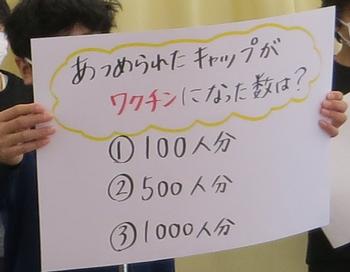 あつめられたキャップが
ワクチンになった数は?
①100人分
②500人分
③1000人分